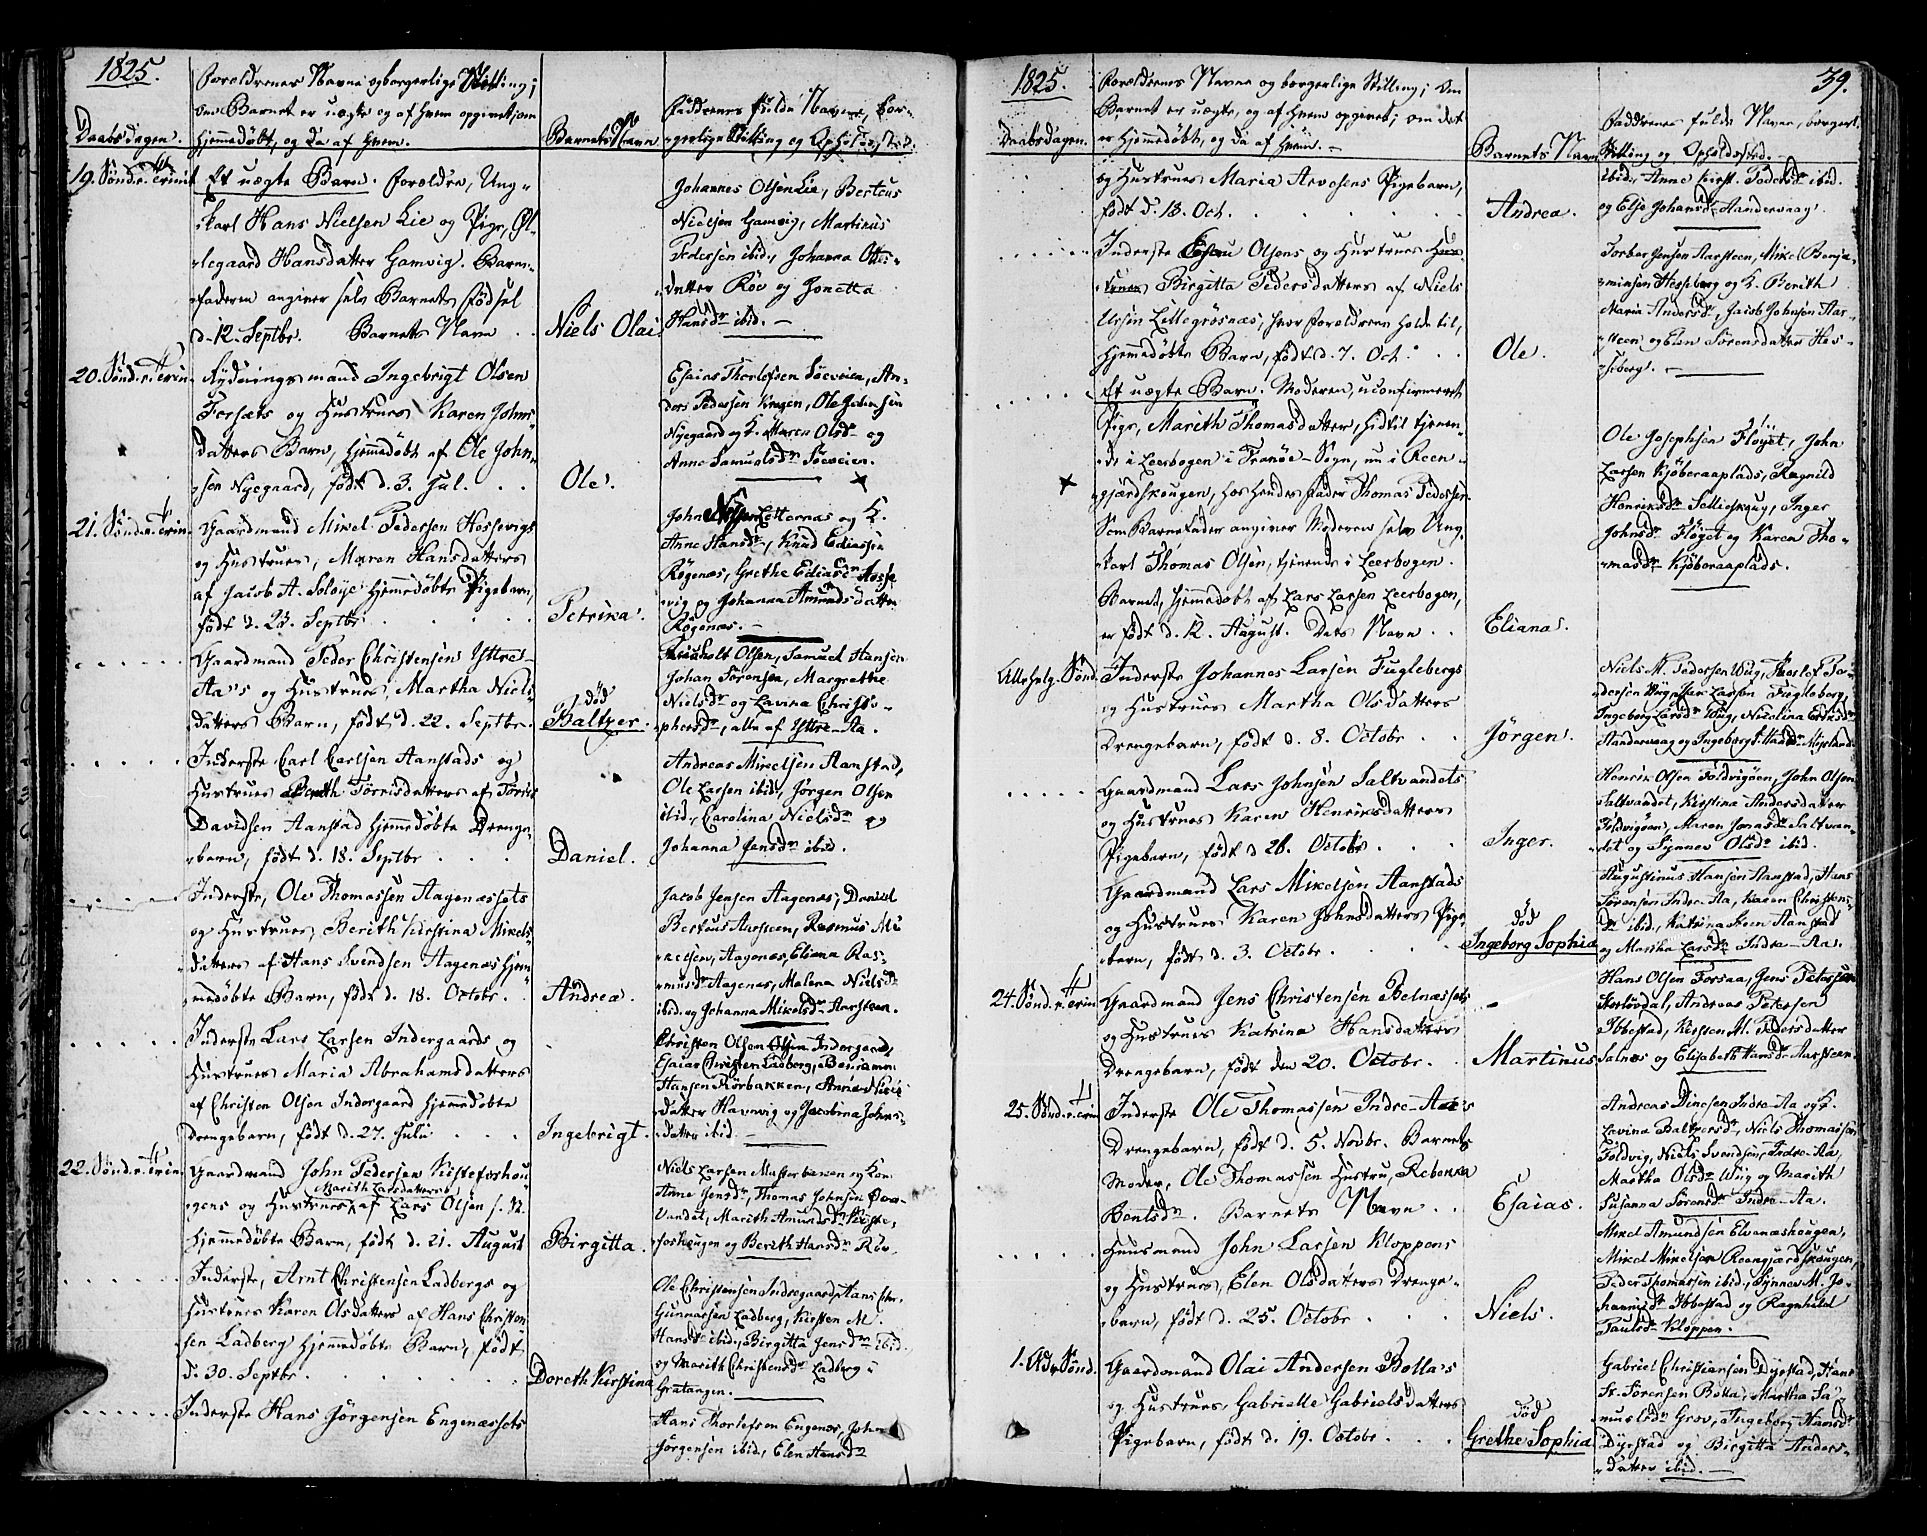 1825.
Forældrenes Navne og borgerlige Stilling;
om Barnet er uægte og af hvem opgivet; om
hjemmedøbt, og da af hvem.
Daabsdagen.
Barnets Navn
Faddrenes fulde Navne, bor-
gerlige Stilling og Opholdssted.
19. Sønd. e. Trinit.
Et uægte Barn. Forældre, Ung-
karl Hans Nielsen Lie og Pige, Øl-
legaard Hansdatter Gamvig. Barne-
faderen angiver selv Barnets Fødsel
d. 12. Septbr. Barnets Navn
Niels Olai
Johannes Olsen Lie, Berteus
Nielsen Gamvig, Martinus
Pedersen ibid., Johanna Otte-
datter Röv og Jonetta
Hansdr ibid.
20. Sønd. e. Trin.
Rydningsmand Ingebrigt Olsen
Forsæts og Hustrues Karen Johns-
datters Barn, hjemmedøbt af Ole John-
sen Nyegaard, født d. 3. Jul.
Ole.
Esaias Thorlefsen Søeveien, An-
ders Pedersen Kragen, Ole Johnsen
Nyegaard og K. Maren Olsdr og
Anne Samuelsdr Søeveien.
21. Sønd. e. Trin.
Gaardmand Mikel Pedersen Hessevigs
og Hustrues, Maren Hansdatters
af Jacob A. Soløye hjemmedøbte Pigebarn,
født d. 23. Septbr
Petrika.
John Olsen Letternæs og K.
Anne Hansdr, Knud Ediassen
Røgenæs, Grethe Ediasdr Hesse-
vig og Johanna Amundsdatter
Røgenæs.
Gaardmand Peder Christensen Yttre-
Aa's og Hustrues, Martha Niels-
datters Barn, født d. 22. Septbr.
død
Baltzer.
Olsen, Samuel Hansen
Johan Sørensen, Margrethe
Nielsdr og Lavina Christo-
phersdr, alle af Yttre-Aa.
Inderste Carl Carlsen Aanstads og
Hustrues Berith Torrisdatters af Torris
Davidsen Aanstad hjemmedøbte Drenge-
barn, født d. 18. Septbr
Daniel.
Andreas Mikelsen Aanstad,
Ole Larsen ibid., Jørgen Olsen
ibid., Carolina Nielsdr og
Johanna Jensdr ibid.
Inderste, Ole Thomassen Aagenæssets
og Hustrues, Berith Kirstina Mikels-
datters af Hans Svendsen Aagenæs hjem-
medøbte Barn, født d. 18. Octobr.
Andrea.
Jacob Jensen Aagenæs, Daniel
Berteus Aarsteen, Rasmus Mi-
kelsen, Aagenæs, Eliana Ras-
musdr Aagenæs, Malena Nielsdr
ibid. og Johanna Mikelsdr Aarsteen.
Inderste Lars Larsen Indergaards og
Hustrues Maria Abrahamsdatters
af Christen Olsen Indergaard hjemmedøbte
Drengebarn, født d. 27. Julii
Ingebrigt.
Christen Olsen Indergaard,
Esaias Christen Ladberg, Beniamin
Hansen Rörbakken, Anne
datter Havnvig og Jacobina Johns-
datter ibid.
22. Sønd. e. Trin.
Gaardmand John Pedersen Kistefoshou-
Marith Larsdatters
gens og Hustrues af Lars Olsen s. St.
hjemmedøbte Barn, født d. 21. August
Birgitta.
Niels Larsen Møllerbakken og Kone
Anne Jensdr, Thomas Johnsen
Vandet, Marith Amundsdr Kiste-
foshougen og Berith Hansdr Röv.
Inderste, Arnt Christensen Ladbergs og
Hustrues Karen Olsdatters af Hans Christen-
sen Ladberg hjemmedøbte Barn, født
d. 30. Septbr
Doreth Kirstina
Ole Christensen Indregaard, Hans Chr.
Gunnersen Ladberg, Kirsten M.
Hansdr ibid., Birgitta Jensdr ibid.
og Marith Christensdr Ladberg i
Gratangen.
Inderste Hans Jörgensen Engenæssets
Hans Thorlefsen Engenæs, John
Jörgensen ibid., Elen Hansdr
1825.
39.
Forældrenes Navne og borgerlige Stilling; Om
Barnet er uægte, og af hvem opgivet; om det
er hjemmedøbt, og da af hvem.
Daabsdagen.
Barnets Navn
Faddrenes fulde Navne, borgerl.
Stilling og Opholdssted.
og Hustrues Maria Arvesens Pigebarn,
født d. 13. Oct.
Andrea.
ibid., Anne Kirst. Pedersdr ibid.
og Else Johansdr Aandervaag.
Inderste Esau Olsens og Hustrues
Birgitta Pedersdatters af Niels
Ursin Lillegrøsnæs, hvor Forældrene holde til,
hjemmedøbte Barn, født d. 7. Oct.
Ole.
Torber Jensen Aarsteen, Mikel Benja-
minsen Hesseberg og K. Berith
Maria Andersdr, Jacob Johnsen Aar-
steen og Elen Sörensdatter Hes-
seberg.
Et uægte Barn. Moderen, uconfirmeret
Pige, Marith Thomasdatter, hidtil tjenen-
de i Leerbogen i Tranöe-Sogn, nu i Reen-
gjærdskougen, hos hendes Fader Thomas Pedersen.
Som Barnefader angiver Moderen selv Ung-
karl Thomas Olsen, tjenende i Leerbogen.
Barnet, hjemmedøbt af Lars Larsen Leerbogen,
er født d. 12. August. Dets Navn
Eliana.
Ole Josephsen Flöyet, John
Larsen Kjöberaaplads, Ragnild
Henriksdr Sellieskoug, Inger
Johnsdr Flöyet og Karen Tho-
masdr Kjöberaaplads.
Allehelg. Sønd.
Inderste Johannes Larsen Fuglebergs
og Hustrues Martha Olsdatters
Drengebarn, født d. 8. Octobr
Jörgen.
Niels M. Pedersen Wug, Thorlef Pe-
dersen Larsen Fugleberg,
Ingeborg Larsdr Wug, Nicolina Eriksdr
Aandervaag og Ingeborg
Gaardmand Lars Johnsen Saltvandets
og Hustrues Karen Henriksdatters
Pigebarn, født d. 26. Octobr
Inger.
Henrik Olsen Foldvigöen, John Olsen
Saltvandet, Kirstina Andersdatter
Foldvigöen, Maren Jonasdr Saltvan-
det og Synnev Olsdr ibid.
Gaardmand Lars Mikelsen Aanstads
og Hustrues Karen Johnsdatters Pige-
barn, født d. 3. Octobr.
død
Ingeborg Sophia
Augustinus Hansen Aanstad, Hans
Sörensen Indre-Aa, Karen Christens-
dr ibid., Katrina Aanstad
og Martha Larsdr Indre-Aa.
24. Sønd. e. Trin.
Gaardmand Jens Christensen Belnæssets
og Hustrues Katrina Hansdatters
Drengebarn, født den 20. Octobr.
Martinus
Hans Olsen Forsaa, Jens Petersen
Andreas Petersen
Ibbestad, Kirsten M. Pedersdatter
Salnæs og Elisabeth Hansdr Aarsteen
25. Sønd. e. Trin.
Inderste Ole Thomassen Indre-Aae's
Drengebarn, født d. 5. Novbr. Barnets
Moder, Ole Thomassen Hustru, Rebekka
Bentsdr. Barnets Navn
Esaias.
Andreas Dinesen Indre-Aa og K.
Lavina Baltzersdr, Niels Thomassen
Foldvig, Niels Svendsen, Indre-Aa,
Martha Olsdr Wüg og Marith
Susanna Sörensdr Indre-Aa.
Huusmand John Larsen Kloppens
og Hustrues, Elen Olsdatters Drenge-
barn, født d. 25. Octobr
Niels.
Mikel Amundsen Elvenæskougen,
Mikel Mikelsen Reengjærdskougen,
Peder Thomassen ibid., Synnev M. Jo-
hannisdr Ibbestad, og Ragnhild
Paulsdr Kloppen.
1. Adv. Sønd.
Gaardmand Olai Andersen Bolla's
og Hustrues, Gabrielle Gabrielsdatters
Pigebarn, født d. 19. Octobr.
død
Grethe Sophia
Gabriel Christiansen Dyrstad, Hans
St. Sörensen Bolla, Martha Sa-
muelsdr Grov, Ingeborg Hansdr
Dyrstad og Birgitta Anders-
datter ibid.